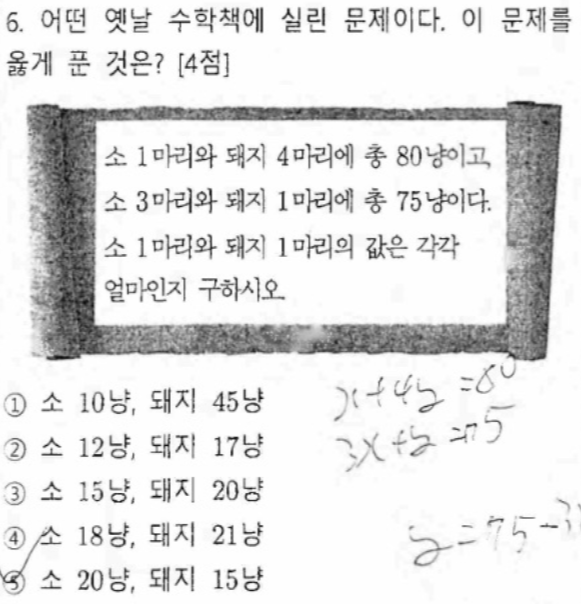 6. 어떤 옛날 수학책에 실린 문제이다. 이 문제를
옳게 푼 것은? [4점]
소 1마리와 돼지 4마리에 총 80냥이고,
소 3마리와 돼지 1마리에 총 75냥이다.
소 1마리와 돼지 1마리의 값은 각각
얼마인지 구하시오.
① 소 10냥, 돼지 45냥
② 소 12냥, 돼지 17냥
③ 소 15냥, 돼지 20냥
④ 소 18냥, 돼지 21냥
⑤ 소 20냥, 돼지 15냥
x+4y=80
3x+y=75
y=75-3x